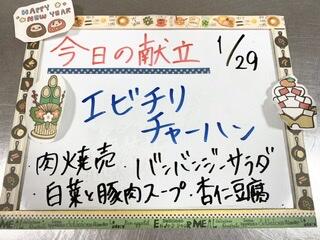 HAPPY
NEW YEAR
今日の献立
1/29
エビチリ
チャーハン
・肉焼売・バンバンジーサラダ
・白菜と豚肉スープ・杏仁豆腐